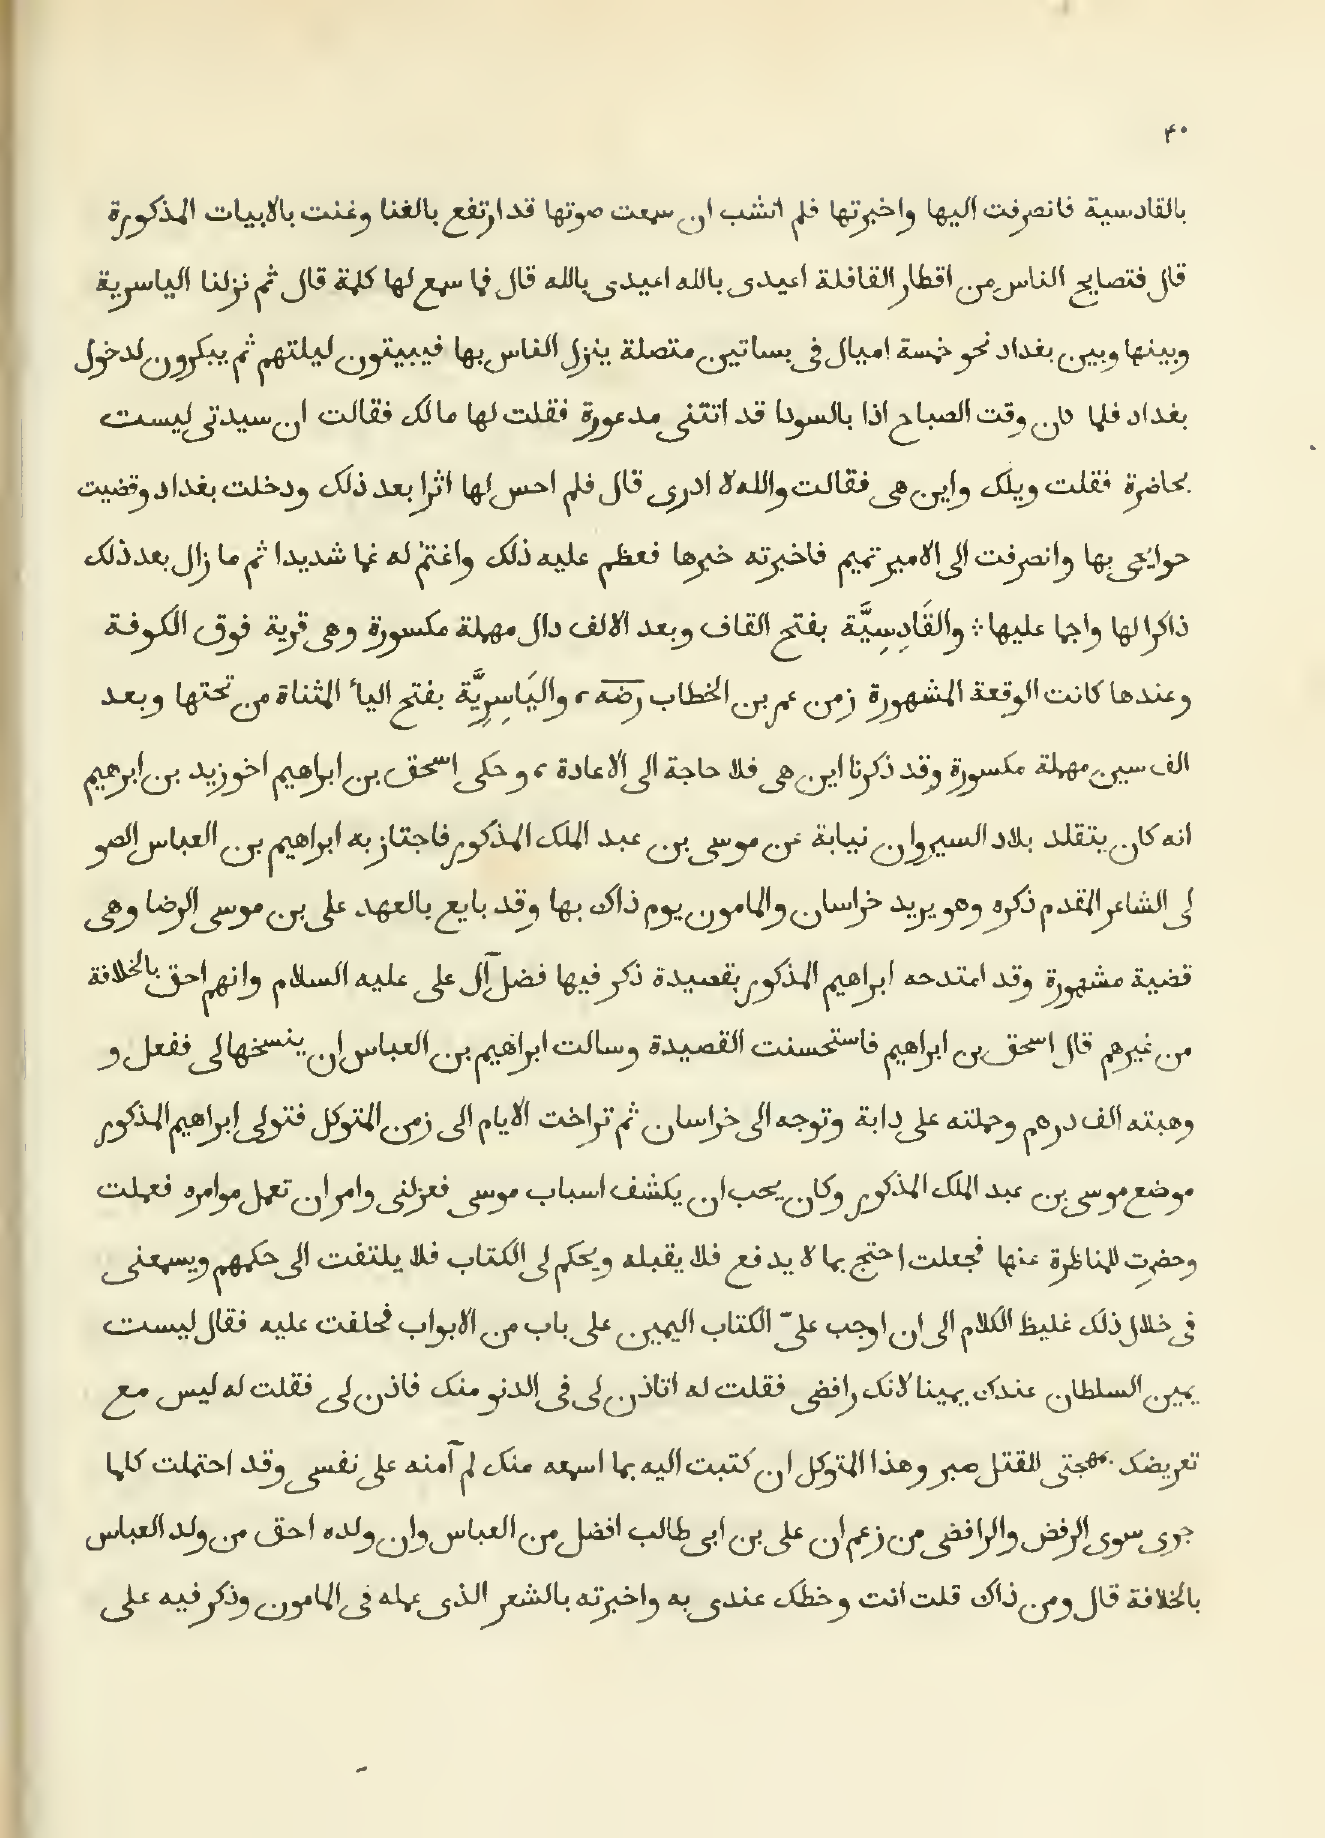 ۴۰
بالقادسية فانصرفت اليها واخبرتها فلم انشب ان سمعت صوتها قد ارتفع بالغنا وغنت بالابيات المذكورة
قال فتصايح الناس من اقطار القافلة اعيدى بالله اعيدى بالله قال فما سمع لها كلمة قال ثم نزلنا الياسرية
وبينها وبين بغداد نحو خمسة اميال فى بساتين متصلة ينزل الناس بها فيبيتون ليلتهم ثم يبكرون لدخول
بغداد فلما كان وقت الصباح اذا بالسودا قد اتتنى مدعورة فقلت لها مالك فقالت ان سيدتى ليست
بحاضرة فقلت ويلك واين هى فقالت والله لا ادرى قال فلم احس لها اثرا بعد ذلك ودخلت بغداد وقضيت
حوايجى بها وانصرفت الى الامير تميم فاخبرته خبرها فعظم عليه ذلك واغتم له غما شديدا ثم ما زال بعد ذلك
ذاكرا لها واجما عليها ؛ والقَادِسِيَّة بفتح القاف وبعد الالف دال مهملة مكسورة وهى قرية فوق الكوفة
وعندها كانت الوقعة المشهورة زمن عمر بن الخطاب رضه ، واليَاسِرِيَّة بفتح الياء المثناة من تحتها وبعد
الف سين مهملة مكسورة وقد ذكرنا اين هى فلا حاجة الى الاعادة ، وحكى اسحق بن ابراهيم اخو زيد بن ابرهيم
انه كان يتقلد بلاد السيروان نيابة عن موسى بن عبد الملك المذكور فاجتاز به ابراهيم بن العباس الصو
لى الشاعر المقدم ذكره وهو يريد خراسان والمامون يوم ذاك بها وقد بايع بالعهد على بن موسى الرضا وهى
قضية مشهورة وقد امتدحه ابراهيم المذكور بقصيدة ذكر فيها فضل آل على عليه السلام وانهم احق بالخلافة
من غيرهم قال اسحق بن ابراهيم فاستحسنت القصيدة وسالت ابراهيم بن العباس ان ينسخها لى ففعل و
وهبته الف درهم وحملته على دابة وتوجه الى خراسان ثم تراخت الايام الى زمن المتوكل فتولى ابراهيم المذكور
موضع موسى بن عبد الملك المذكور وكان يحب ان يكشف اسباب موسى فعزلنى وامر ان تعمل موامره فعملت
وحضرت للمناظرة عنها فجعلت احتج بما لا يدفع فلا يقبله ويحكم لى الكتاب فلا يلتفت الى حكمهم ويسمعنى
فى خلال ذلك غليظ الكلام الى ان اوجب علىّ الكتاب اليمين على باب من الابواب فحلفت عليه فقال ليست
يمين السلطان عندك يمينا لانك رافضى فقلت له اتاذن لى فى الدنو منك فاذن لى فقلت له ليس مع
تعريضك بمهجتى للقتل صبر وهذا المتوكل ان كتبت اليه بما اسمعه منك لم آمنه على نفسى وقد احتملت كلما
جرى سوى الرفض والرافضى من زعم ان على بن ابى طالب افضل من العباس وان ولده احق من ولد العباس
بالخلافة قال ومن ذاك قلت انت وخطك عندى به واخبرته بالشعر الذى عمله فى المامون وذكر فيه على